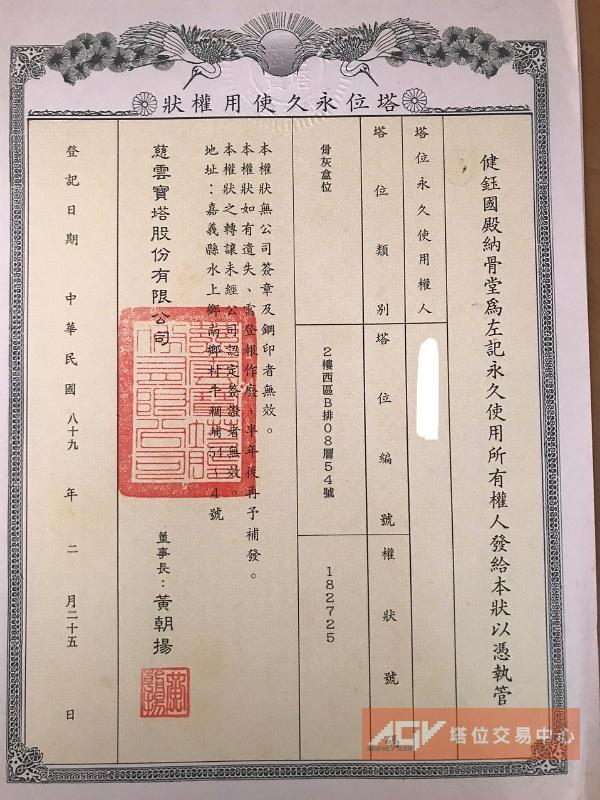 塔位永久使用權狀
健鈺國殿納骨堂為左記永久使用所有權人發給本狀以憑執管
塔位永久使用權人
塔位類別
塔位編號
權狀號
骨灰盒位
2樓西區B排08層54號
182725
本權狀無公司簽章及鋼印者無效。
本權狀如有遺失、需登報作廢，半年後再予補發。
本權狀之轉讓未經公司認定簽證者無效。
地址：嘉義縣水上鄉南鄉村牛稠埔
4號
慈雲寶塔股份有限公司
董事長：黃朝揚
登記日期 中華民國 八十九 年 二 月二十五 日
AGV 塔位交易中心